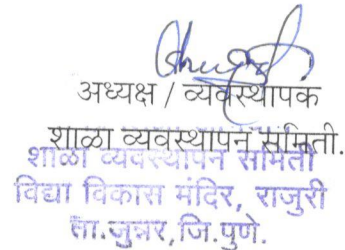 अध्यक्ष / व्यवस्थापक
शाळा व्यवस्थापन समिती.
शाळा व्यवस्थापन समिती
विद्या विकास मंदिर, राजुरी
ता.जुन्नर,जि.पुणे.